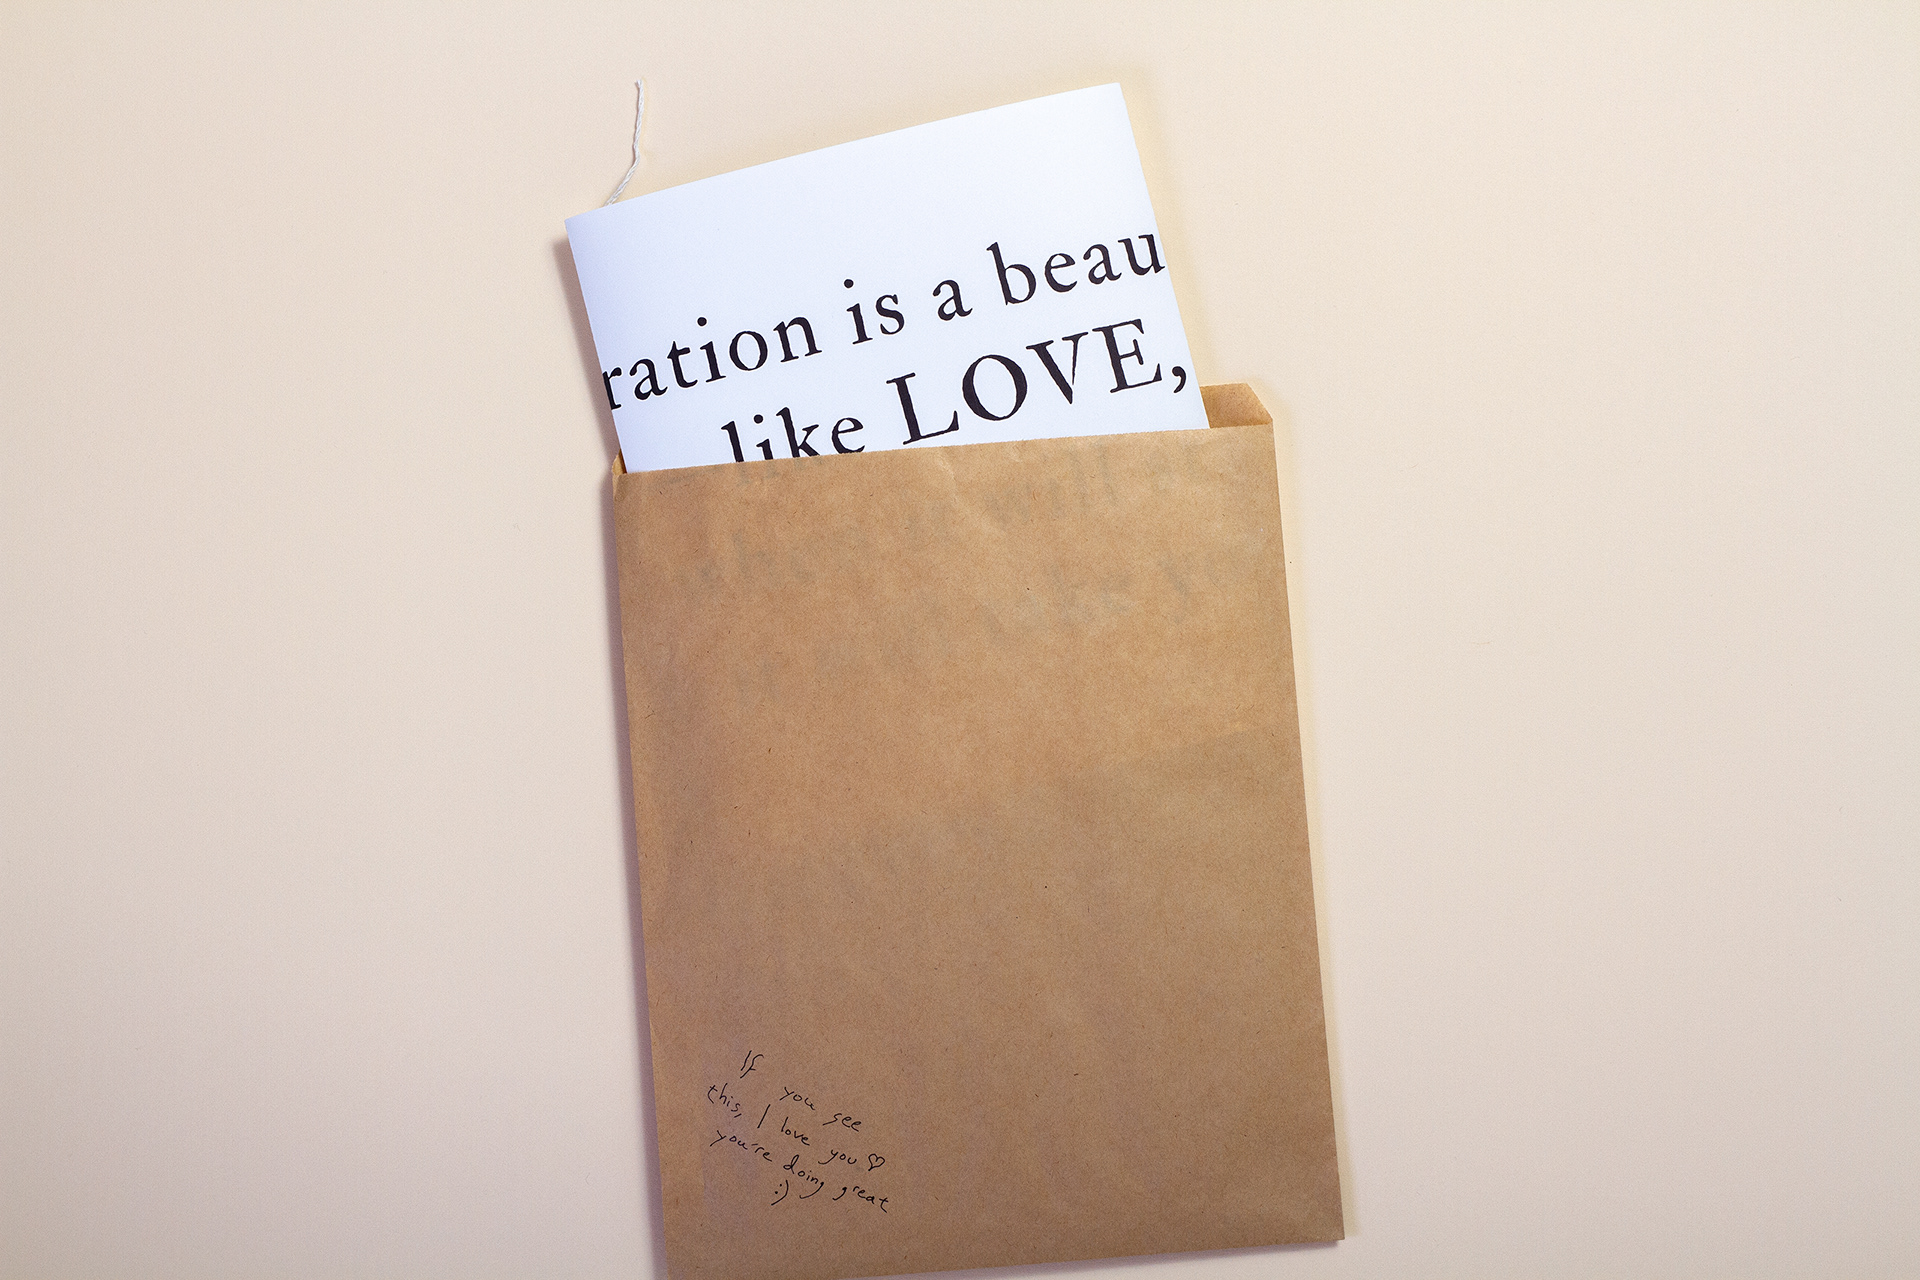 ration is a beau
like LOVE,
If
you see
this, I love you ♡
you're doing great
:)